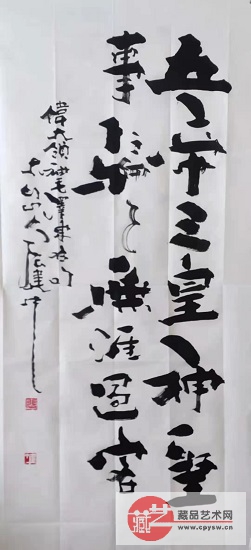 五帝三皇神聖
事騙了無涯過客
偉大領袖毛澤東
藏品艺术网
www.cpysw.cn